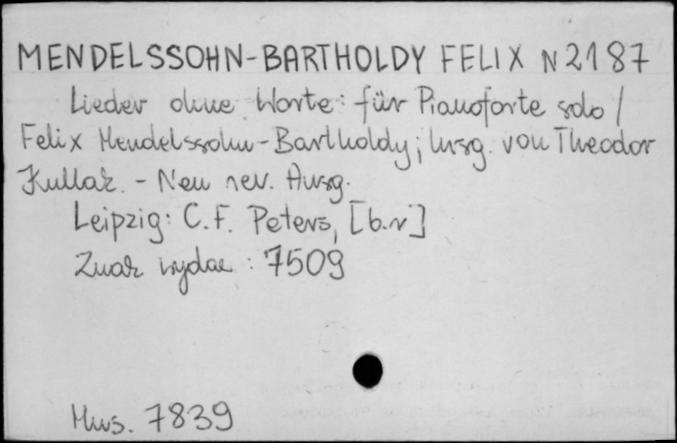 MENDELSSOHN-BARTHOLDY FELIX N 2187
Lieder ohne Worte: für Pianoforte solo /
Felix Mendelssohn-Bartholdy; hrsg. von Theodor
Kullak. - Neu rev. Ausg.
Leipzig: C.F. Peters, [b.r]
Znak wydaw : 7509
Mus. 7839